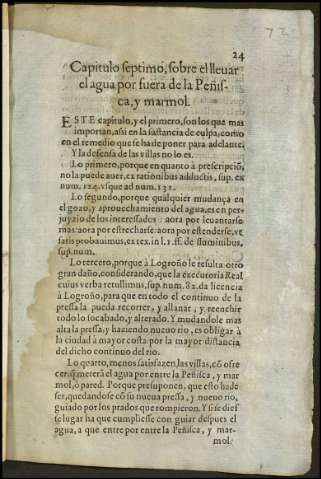 24
72
Capitulo septimo, sobre el lleuar
el agua por fuera de la Peñis-
ca, y marmol.
ESTE capitulo, y el primero, son los que mas
importan, assi en la sustancia de culpa, como
en el remedio que se ha de poner para adelante.
Y la defensa de las villas no lo es.
Lo primero, porque en quanto à prescripciõ,
no la puede auer, ex rationibus adductis, sup. ex
num. 124. vsque ad num. 132.
Lo segundo, porque qualquier mudança en
el gozo, y aprouechamiento del agua, es en per-
juyzio de los interessados: aora por leuantarse
mas: aora por estrecharse: aora por estenderse, vt
satis probauimus, ex tex. in l. 1. ff. de fluminibus,
sup. num.
Lo tercero, porque à Logroño le resulta otro
gran daño, considerando, que la executoria Real
cuius verba retullimus, sup. num. 82. da licencia
à Logroño, para que en todo el continuo de la
pressa la pueda recorrer, y allanar, y reenchir
todo lo socabado, y alterado. Y mudandole mas
alta la pressa, y haziendo nueuo rio, es obligar à
la ciudad à mayor costa por la mayor distancia
del dicho continuo del rio.
Lo quarto, menos satisfazen las villas, cõ ofre
cer, q̃ meterà el agua por entre la Peñisca, y mar
mol, ò pared. Porque presuponen, que esto ha de
ser, quedandose cõ su nueua pressa, y nueuo rio,
guiado por los prados que rompieron. Y si se dies
se lugar ha que cumpliesse con guiar despues el
agua, a que entre por entre la Peñisca, y mar-
mol: